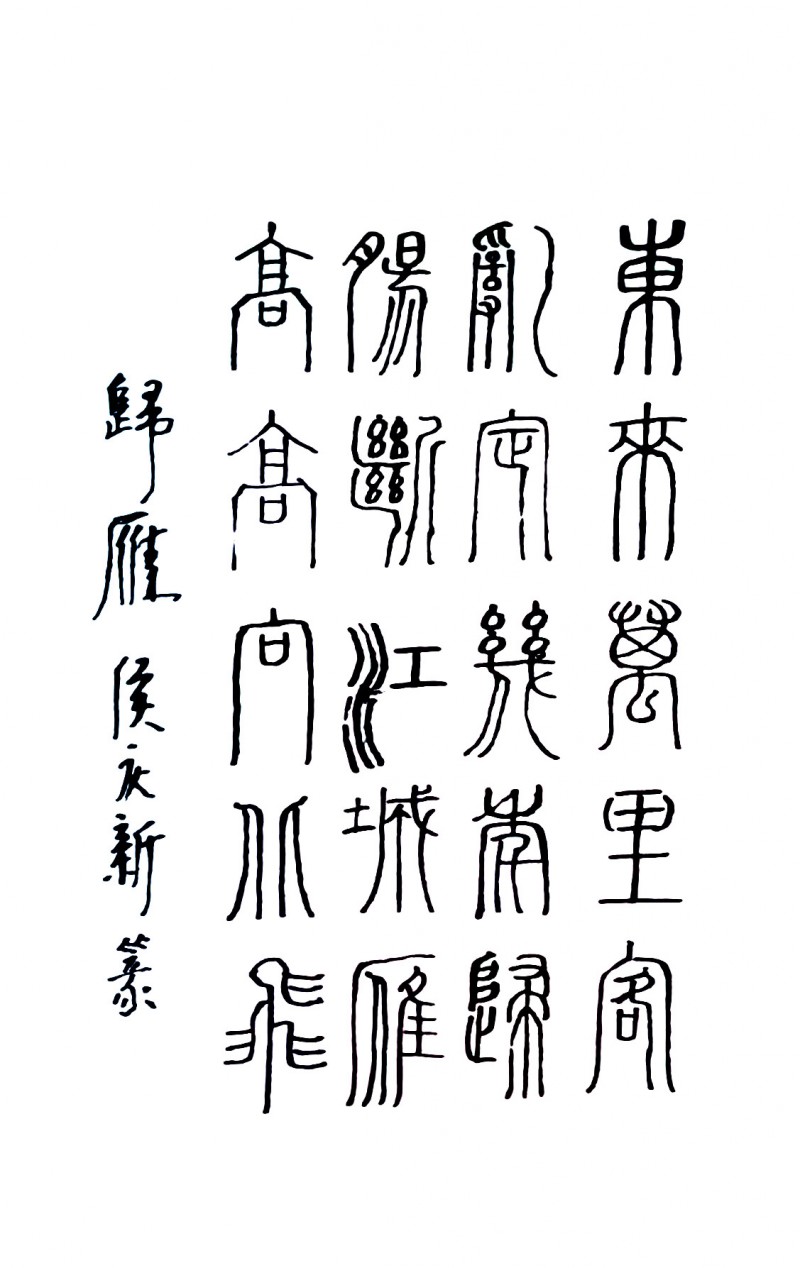 東來萬里客
亂定幾年歸
腸斷江城雁
高高向北飛
歸雁 侯庆新篆